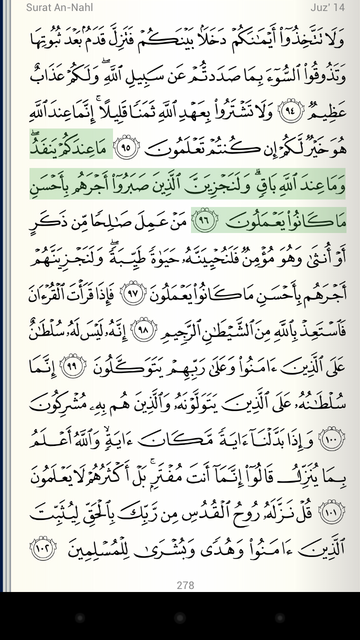 Surat An-Nahl Juz' 14
وَلَا تَتَّخِذُوٓا۟ أَيْمَـٰنَكُمْ دَخَلًۢا بَيْنَكُمْ فَتَزِلَّ قَدَمٌۢ بَعْدَ ثُبُوتِهَا
وَتَذُوقُوا۟ ٱلسُّوٓءَ بِمَا صَدَدتُّمْ عَن سَبِيلِ ٱللَّهِ ۖ وَلَكُمْ عَذَابٌ
عَظِيمٌ ٩٤ وَلَا تَشْتَرُوا۟ بِعَهْدِ ٱللَّهِ ثَمَنًا قَلِيلًا ۚ إِنَّمَا عِندَ ٱللَّهِ
هُوَ خَيْرٌ لَّكُمْ إِن كُنتُمْ تَعْلَمُونَ ٩٥ مَا عِندَكُمْ يَنفَدُ ۖ
وَمَا عِندَ ٱللَّهِ بَاقٍ ۗ وَلَنَجْزِيَنَّ ٱلَّذِينَ صَبَرُوٓا۟ أَجْرَهُم بِأَحْسَنِ
مَا كَانُوا۟ يَعْمَلُونَ ٩٦ مَنْ عَمِلَ صَـٰلِحًا مِّن ذَكَرٍ
أَوْ أُنثَىٰ وَهُوَ مُؤْمِنٌ فَلَنُحْيِيَنَّهُۥ حَيَوٰةً طَيِّبَةً ۖ وَلَنَجْزِيَنَّهُمْ
أَجْرَهُم بِأَحْسَنِ مَا كَانُوا۟ يَعْمَلُونَ ٩٧ فَإِذَا قَرَأْتَ ٱلْقُرْءَانَ
فَٱسْتَعِذْ بِٱللَّهِ مِنَ ٱلشَّيْطَـٰنِ ٱلرَّجِيمِ ٩٨ إِنَّهُۥ لَيْسَ لَهُۥ سُلْطَـٰنٌ
عَلَى ٱلَّذِينَ ءَامَنُوا۟ وَعَلَىٰ رَبِّهِمْ يَتَوَكَّلُونَ ٩٩ إِنَّمَا
سُلْطَـٰنُهُۥ عَلَى ٱلَّذِينَ يَتَوَلَّوْنَهُۥ وَٱلَّذِينَ هُم بِهِۦ مُشْرِكُونَ
١٠٠ وَإِذَا بَدَّلْنَآ ءَايَةً مَّكَانَ ءَايَةٍ ۙ وَٱللَّهُ أَعْلَمُ
بِمَا يُنَزِّلُ قَالُوٓا۟ إِنَّمَآ أَنتَ مُفْتَرٍۭ ۚ بَلْ أَكْثَرُهُمْ لَا يَعْلَمُونَ
١٠١ قُلْ نَزَّلَهُۥ رُوحُ ٱلْقُدُسِ مِن رَّبِّكَ بِٱلْحَقِّ لِيُثَبِّتَ
ٱلَّذِينَ ءَامَنُوا۟ وَهُدًى وَبُشْرَىٰ لِلْمُسْلِمِينَ ١٠٢
278